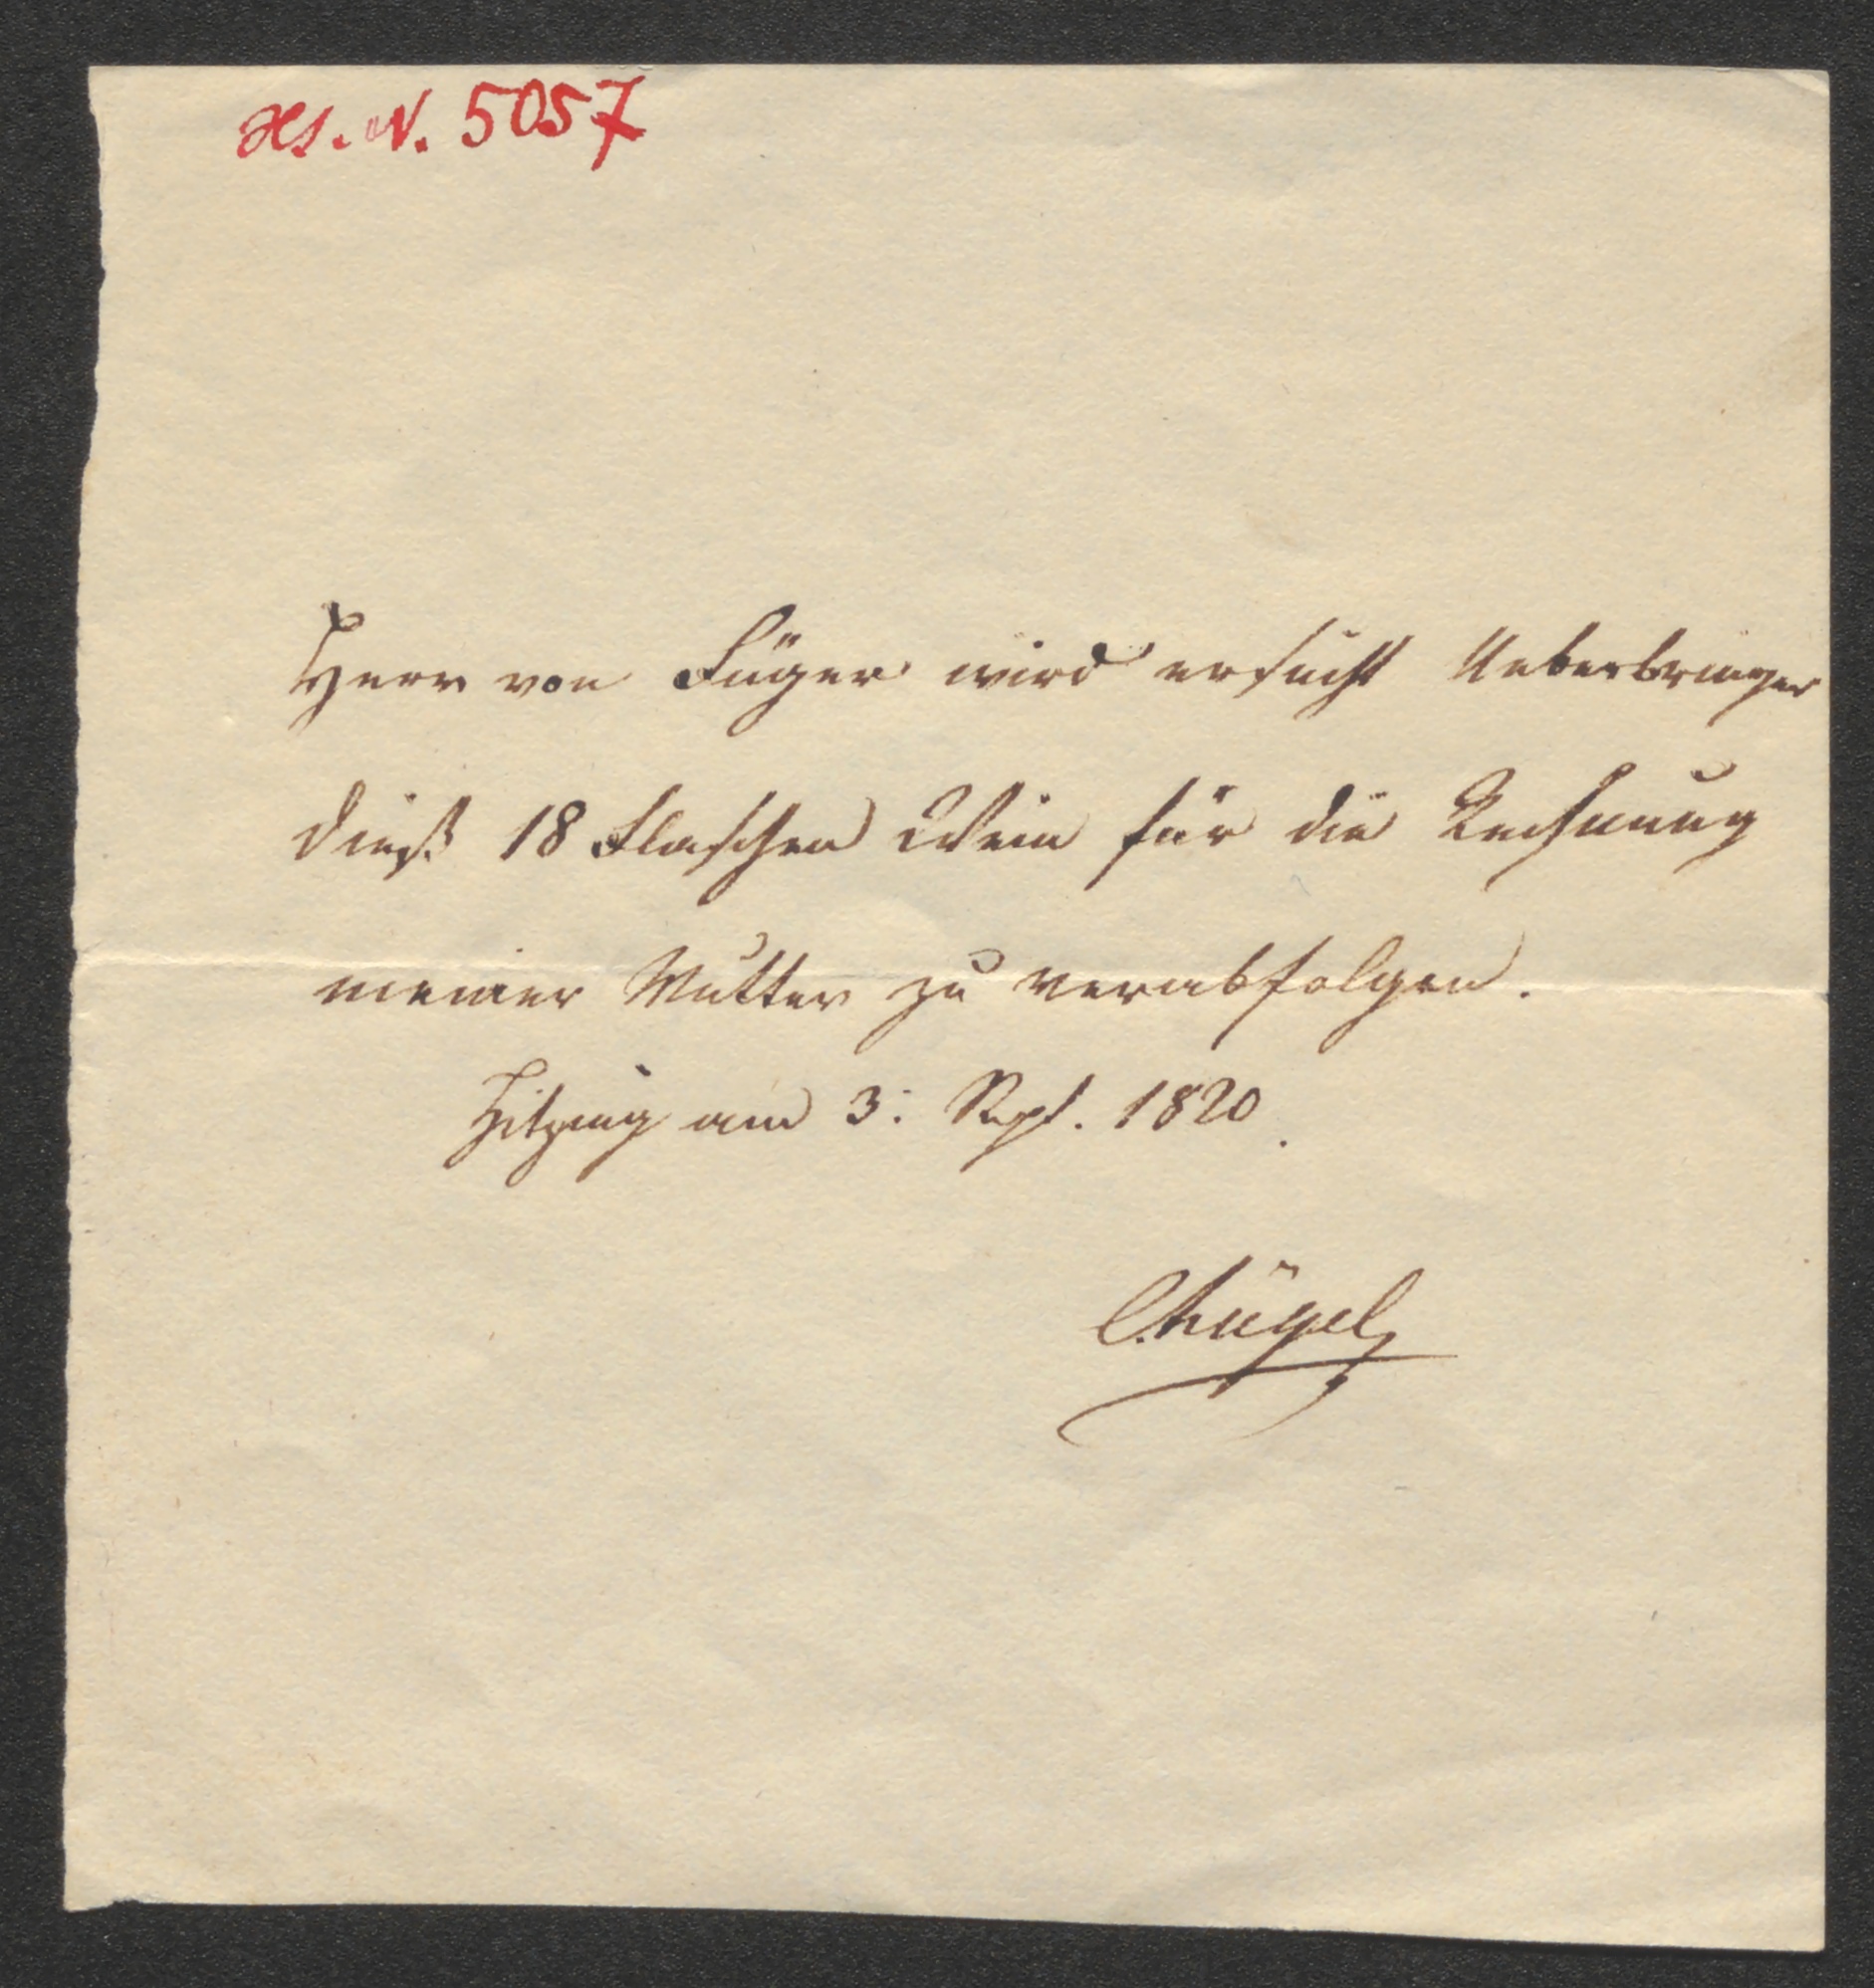 Hs. N. 5057
Herr von Füger wird ersucht Ueberbringer
dieß 18 Flaschen Wein für die Rechnung
meiner Mutter zu verabfolgen.
Hitzing am 3: Sept. 1820.
CHügel